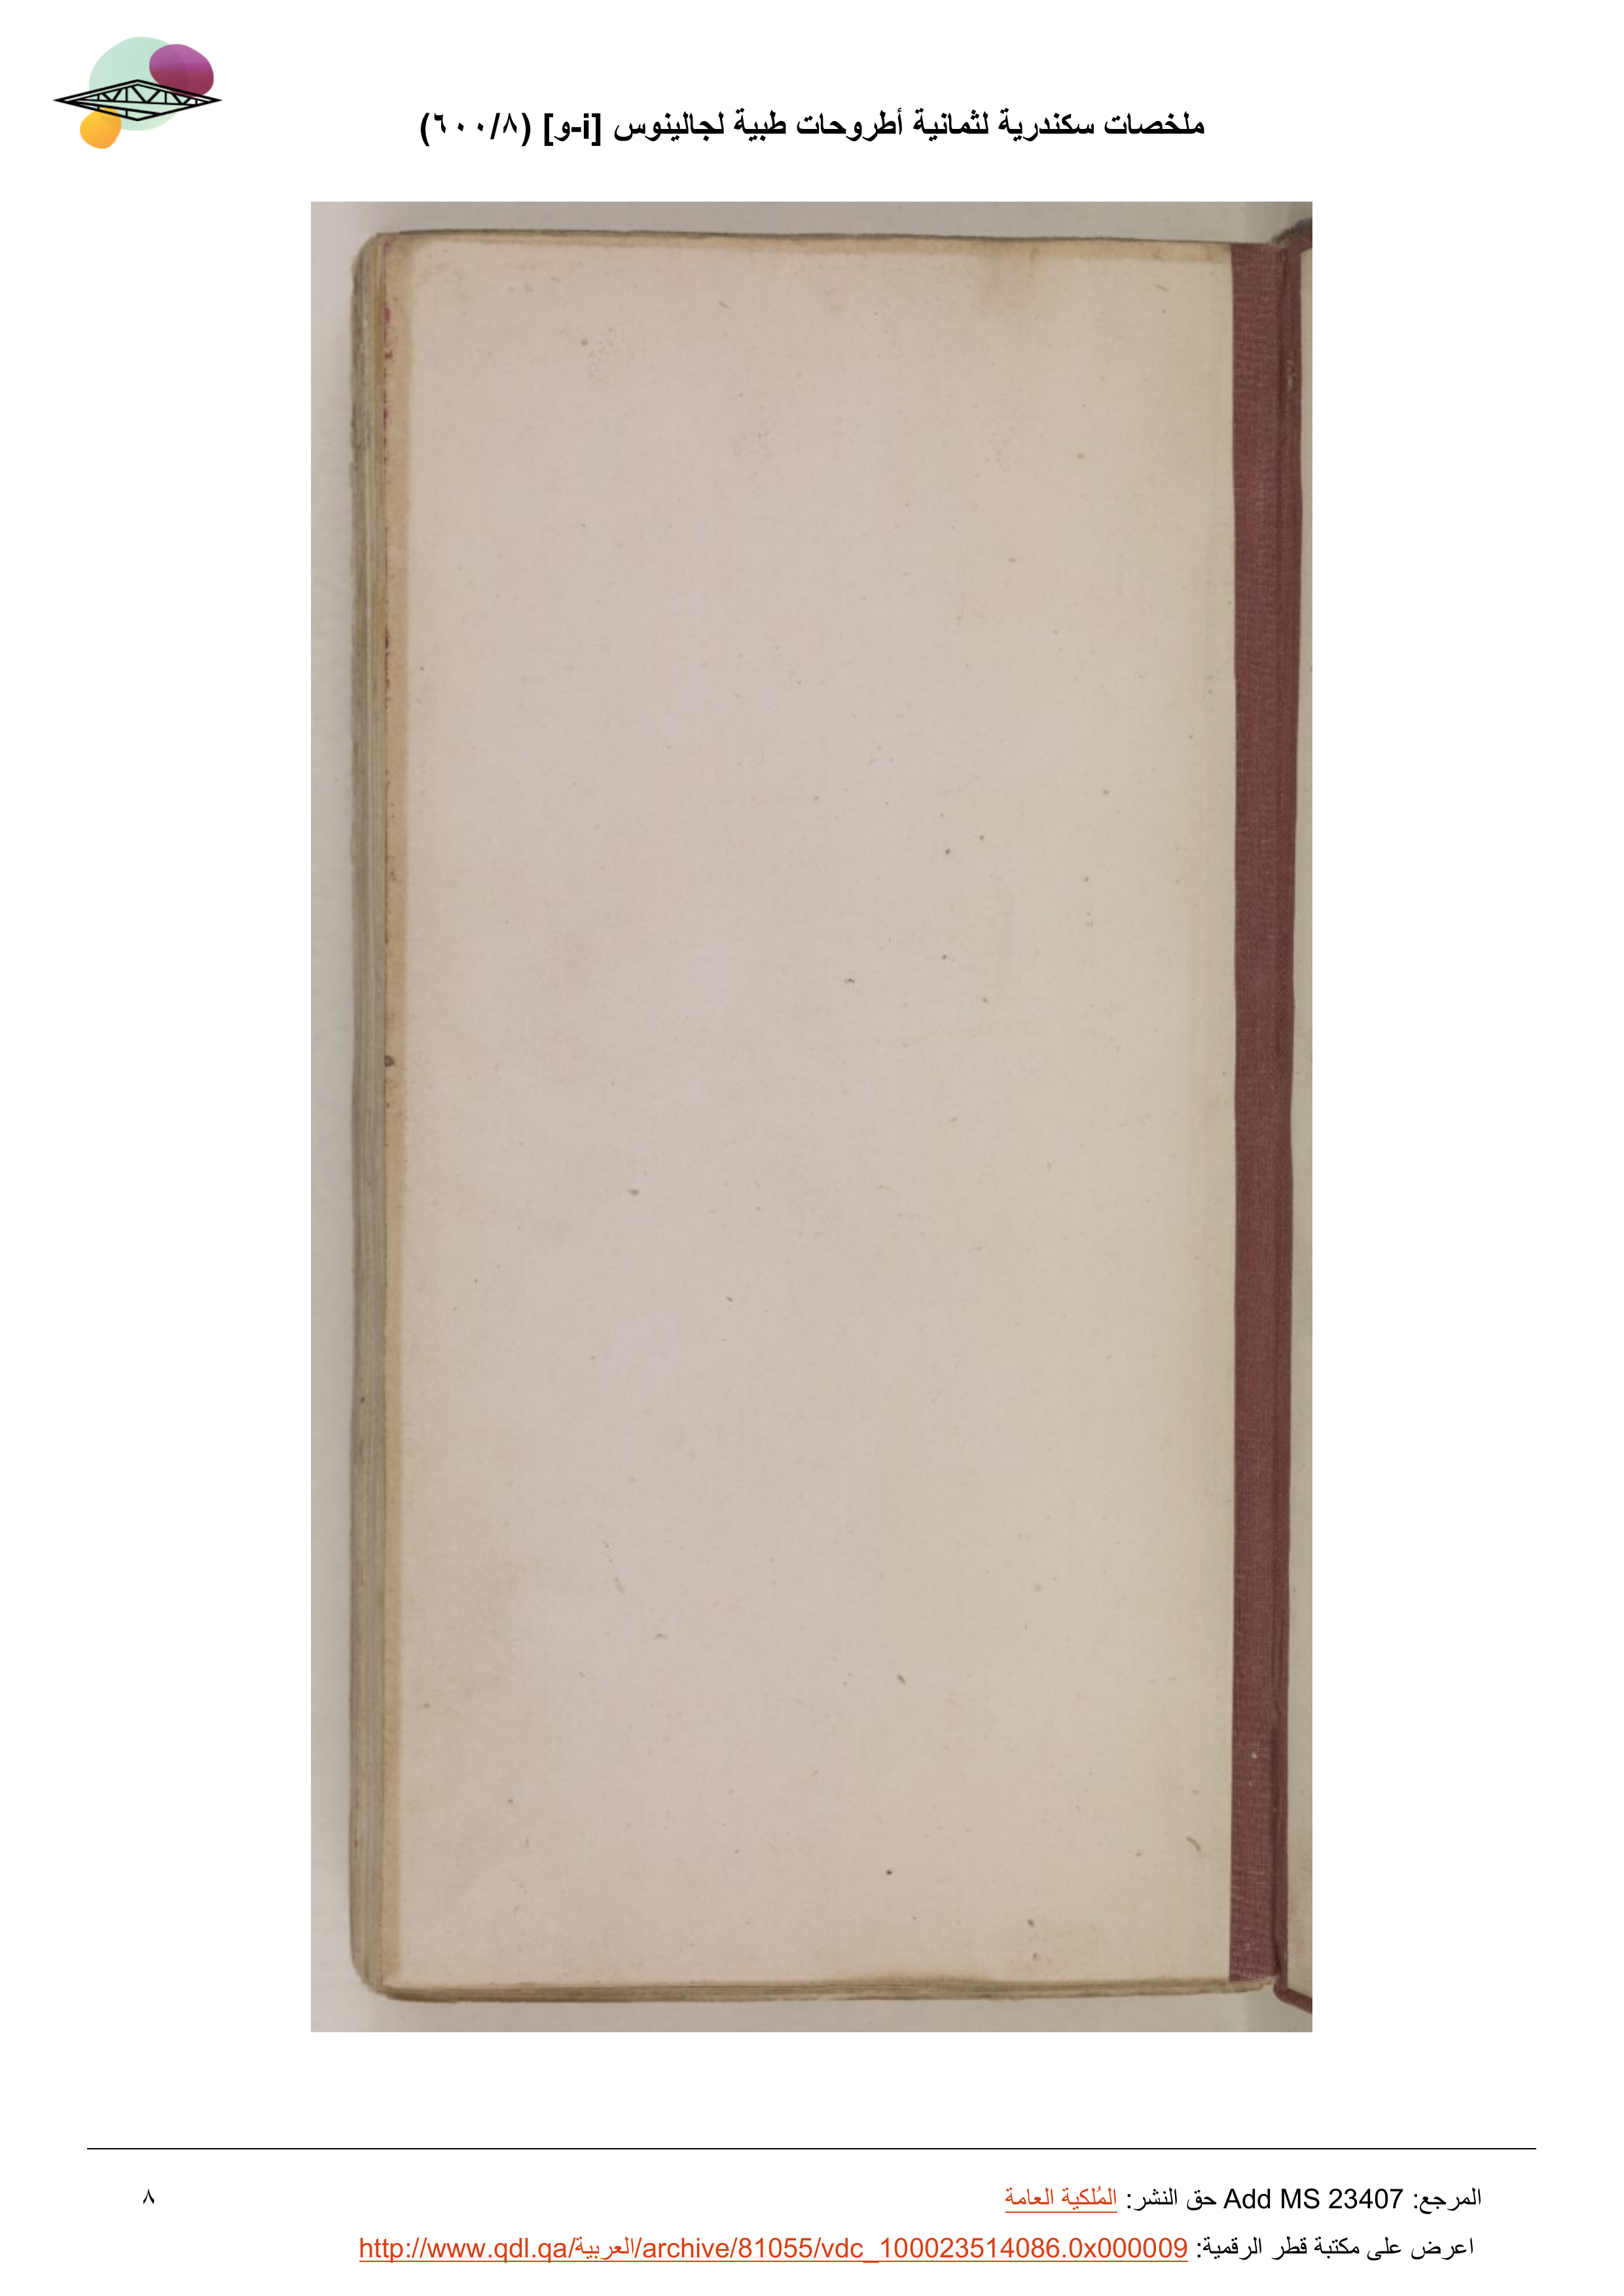 ملخصات سكندرية لثمانية أطروحات طبية لجالينوس [i-و] (٦٠٠/٨)
المرجع: Add MS 23407 حق النشر: المُلكية العامة
٨
اعرض على مكتبة قطر الرقمية: http://www.qdl.qa/العربية/archive/81055/vdc_100023514086.0x000009